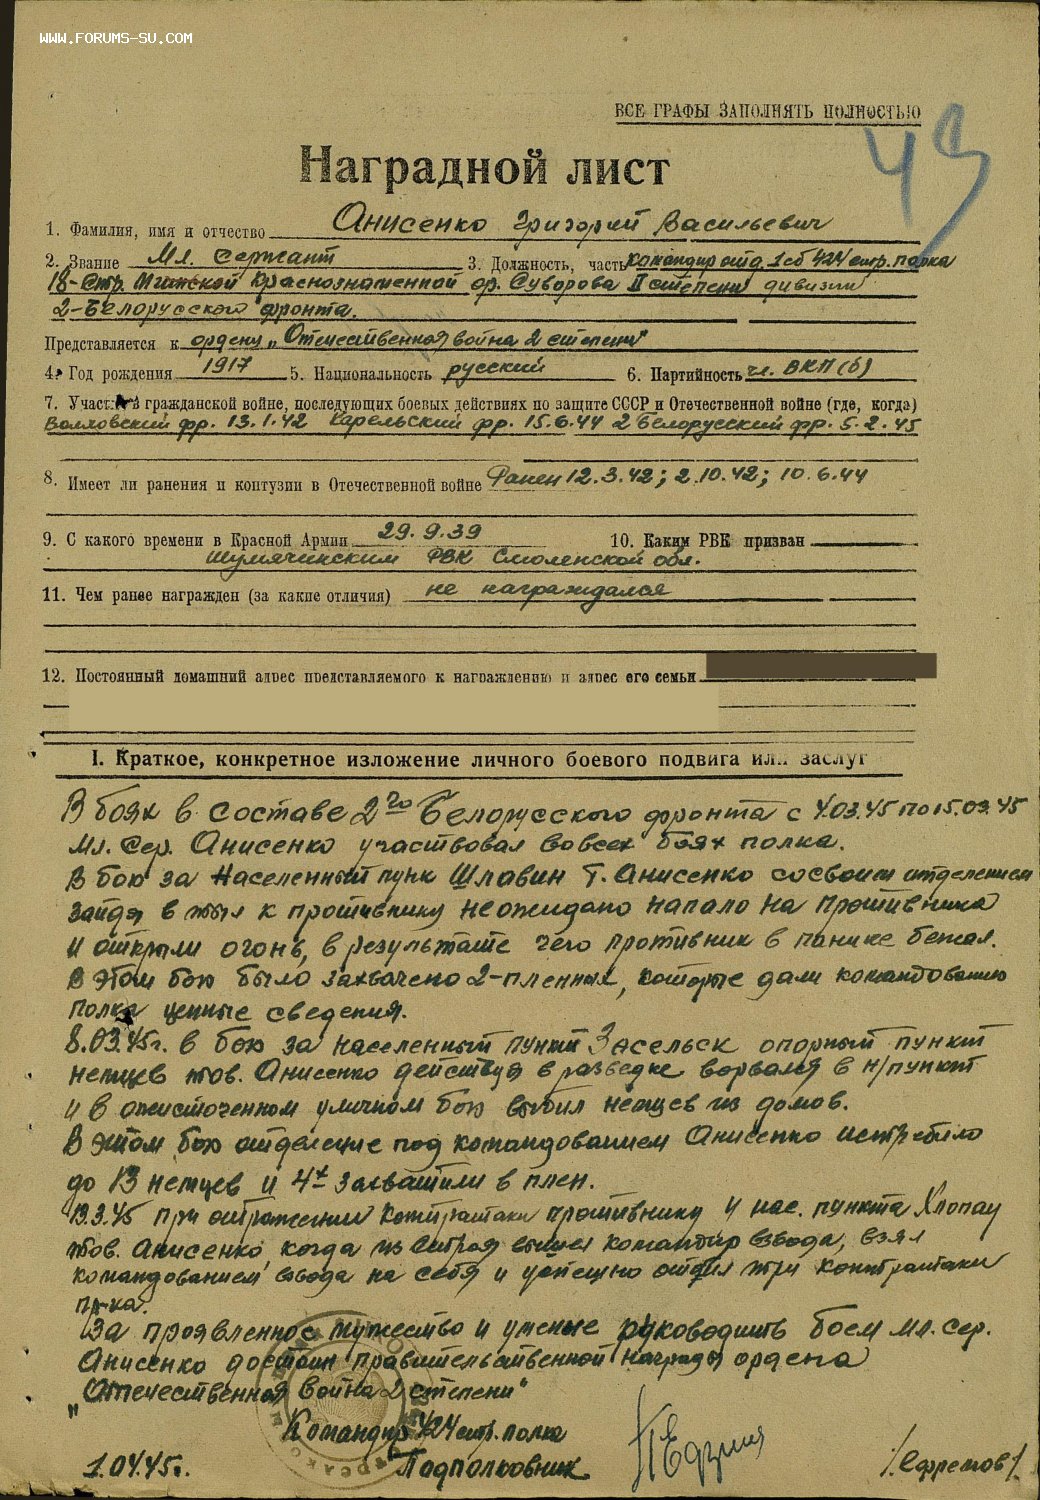 WWW.FORUMS-SU.COM
ВСЕ ГРАФЫ ЗАПОЛНЯТЬ ПОЛНОСТЬЮ
Наградной лист
1. Фамилия, имя и отчество Анисенко Григорий Васильевич
2. Звание Мл. Сержант 3. Должность, часть командир отд. 1 сб 424 стр. полка
18-Стр. Мгинской Краснознаменной ор. Суворова II степени дивизии
2-Белорусского фронта.
Представляется к ордену „Отечественная война 2 степени"
4. Год рождения 1917 5. Национальность русский 6. Партийность чл. ВКП(б)
7. Участие в гражданской войне, последующих боевых действиях по защите СССР и Отечественной войне (где, когда)
Волховский фр. 13.1.42 Карельский фр. 15.6.44 2 Белорусский фр. 5.2.45
8. Имеет ли ранения и контузии в Отечественной войне Ранен 12.3.42; 2.10.42; 10.6.44
9. С какого времени в Красной Армии 29.9.39 10. Каким РВК призван
Шумячинским РВК Смоленской обл.
11. Чем ранее награжден (за какие отличия) не награждался
12. Постоянный домашний адрес представляемого к награждению и адрес его семьи
I. Краткое, конкретное изложение личного боевого подвига или заслуг
В боях в составе 2го Белорусского фронта с 4.03.45 по 15.03.45
Мл. Сер. Анисенко участвовал во всех боях полка.
В бою за населенный пунк Шлавин т. Анисенко со своим отделением
зайдя в тыл к противнику неожидано напало на противника
и открыли огонь, в результате чего противник в панике бежал.
В этом бою было захвачено 2-пленных, которые дали командованию
полка ценные сведения.
8.03.45г. в бою за населенный пункт Засельск опорный пункт
немцев тов. Анисенко действуя в разведке ворвался в н/пункт
и в ожисточенном уличном бою выбил немцев из домов.
В этом бою отделение под командованием Анисенко истребило
до 13 немцев и 4х захватили в плен.
13.3.45 при отражении контратаки противнику у нас. пункта Хлопау
тов. Анисенко, когда из строя вышел командир взвода, взял
командованием взвода на себя и успешно отбил три контратаки
пр-ка.
За проявленное мужество и умение руководить боем мл. сер.
Анисенко достоин правительственной награды ордена
„Отечественная война 2 степени"
Командир 424 стр. полка
1.04.45г. Подполковник /Ефремов/.